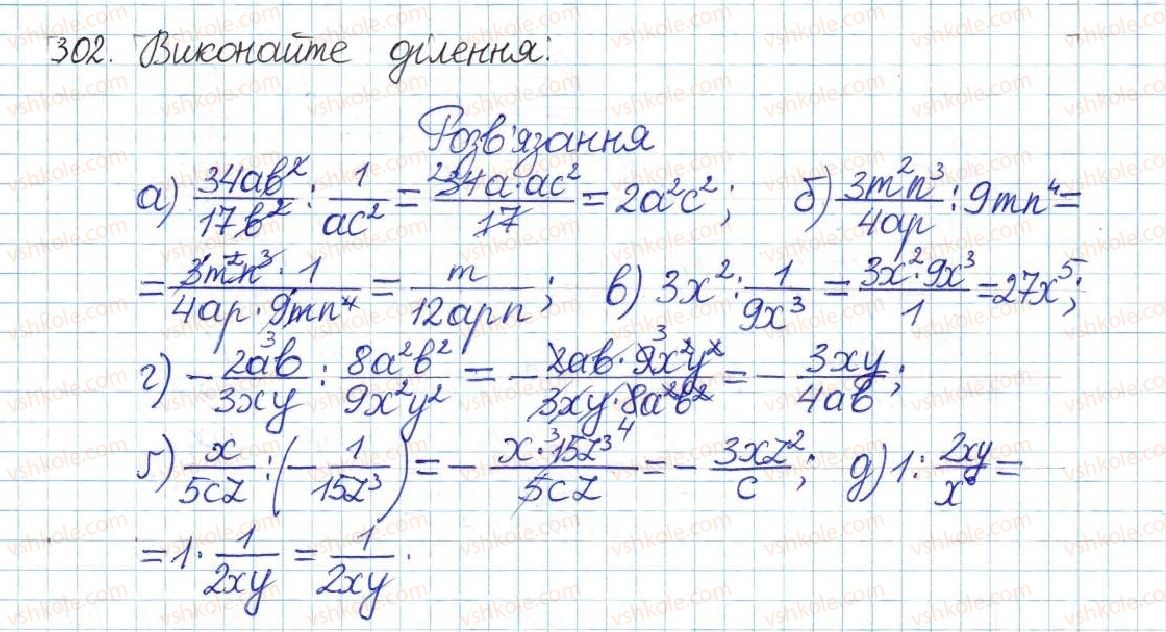 302. Виконайте ділення:
Розв'язання
а) 34ab²/17b² : 1/ac² = 34a·ac²/17 = 2a²c²; б) 3m²n³/4ap : 9mn⁴ =
= 3m²n³·1/4ap·9mn⁴ = m/12apn; в) 3x² : 1/9x³ = 3x²·9x³/1 = 27x⁵;
г) - 2ab/3xy : 8a²b²/9x²y² = - 2ab·9x²y²/3xy·8a²b² = - 3xy/4ab;
ґ) x/5cz : (- 1/15z³) = - x·15z³/5cz = - 3xz²/c; д) 1 : 2xy/x =
= 1· 1/2xy = 1/2xy.
vshkole.com